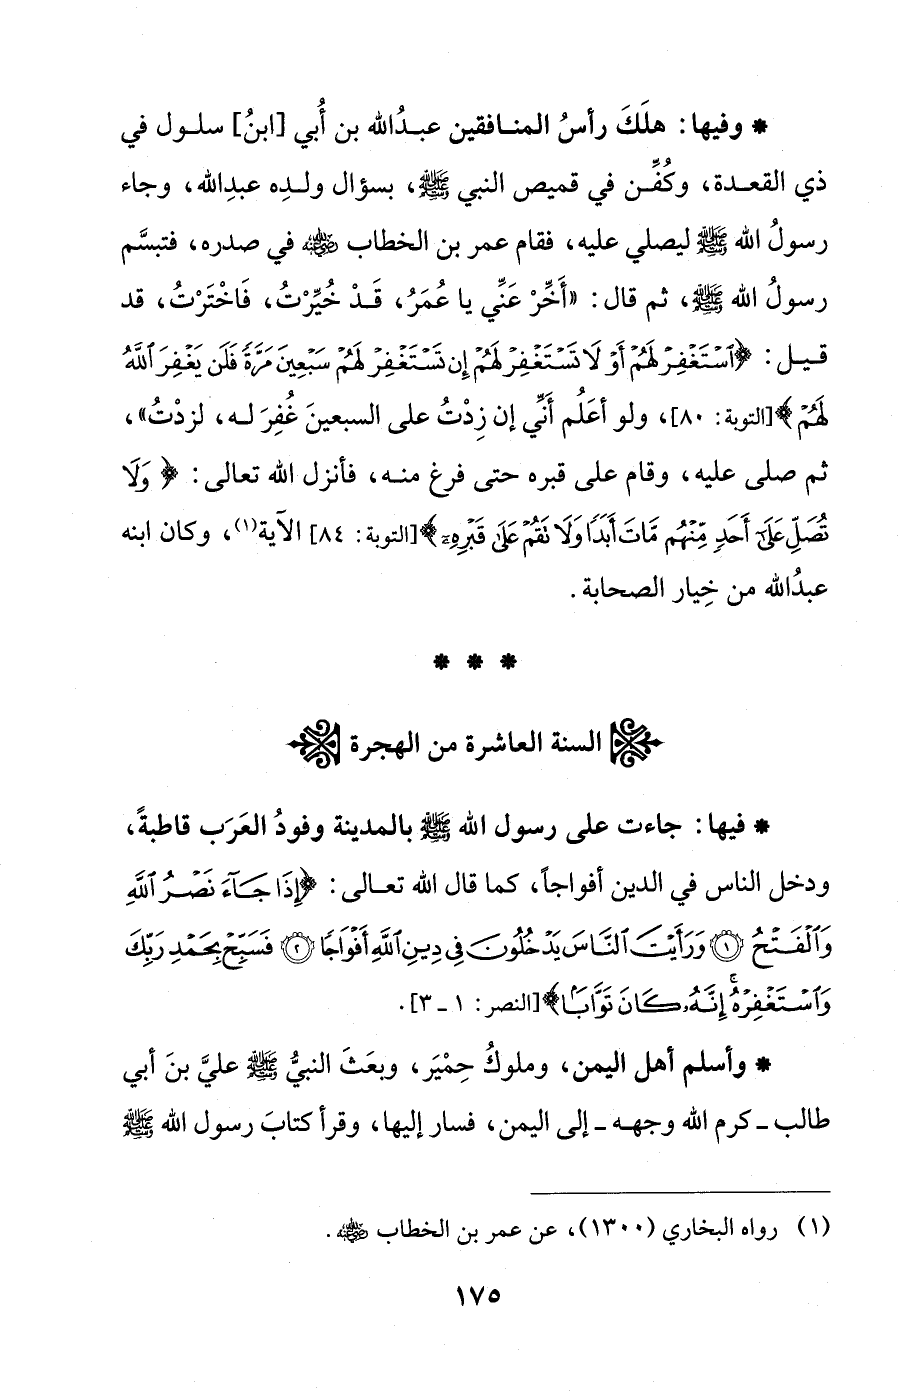 * وفيها: هلَكَ رأسُ المنافقين عبدُالله بن أُبي [ابنُ] سلول في
ذي القعدة، وكُفِّن في قميص النبي ﷺ، بسؤال ولدِه عبدِالله، وجاء
رسولُ الله ﷺ ليصلي عليه، فقام عمر بن الخطاب رضي الله عنه في صدره، فتبسَّم
رسولُ الله ﷺ، ثم قال: «أَخِّرْ عَنِّي يا عُمَرُ، قَدْ خُيِّرْتُ، فَاخْتَرْتُ، قد
قيل: ﴿ٱسْتَغْفِرْ لَهُمْ أَوْ لَا تَسْتَغْفِرْ لَهُمْ إِن تَسْتَغْفِرْ لَهُمْ سَبْعِينَ مَرَّةً فَلَن يَغْفِرَ ٱللَّهُ
لَهُمْ﴾ [التوبة: ٨٠]، ولو أعلُم أَنِّي إن زِدْتُ على السبعينَ غُفِرَ له، لزدْتُ»،
ثم صلى عليه، وقام على قبره حتى فرغ منه، فأنزل الله تعالى: ﴿وَلَا
تُصَلِّ عَلَىٰٓ أَحَدٍ مِّنْهُم مَّاتَ أَبَدًا وَلَا تَقُمْ عَلَىٰ قَبْرِهِۦٓ﴾ [التوبة: ٨٤] الآية(١)، وكان ابنه
عبدُالله من خِيار الصحابة.
* * *
السنة العاشرة من الهجرة
* فيها: جاءت على رسول الله ﷺ بالمدينة وفودُ العَرَب قاطبةً،
ودخل الناس في الدين أفواجاً، كما قال الله تعالى: ﴿إِذَا جَآءَ نَصْرُ ٱللَّهِ
وَٱلْفَتْحُ ١ وَرَأَيْتَ ٱلنَّاسَ يَدْخُلُونَ فِى دِينِ ٱللَّهِ أَفْوَاجًا ٢ فَسَبِّحْ بِحَمْدِ رَبِّكَ
وَٱسْتَغْفِرْهُ ۚ إِنَّهُۥ كَانَ تَوَّابًۢا﴾ [النصر: ١ ـ ٣].
* وأسلم أهل اليمن، وملوكُ حِمْيَر، وبعَثَ النبيُّ ﷺ عليَّ بنَ أبي
طالب ـ كرم الله وجهه ـ إلى اليمن، فسار إليها، وقرأ كتابَ رسول الله ﷺ
(١) رواه البخاري (١٣٠٠)، عن عمر بن الخطاب رضي الله عنه.
١٧٥